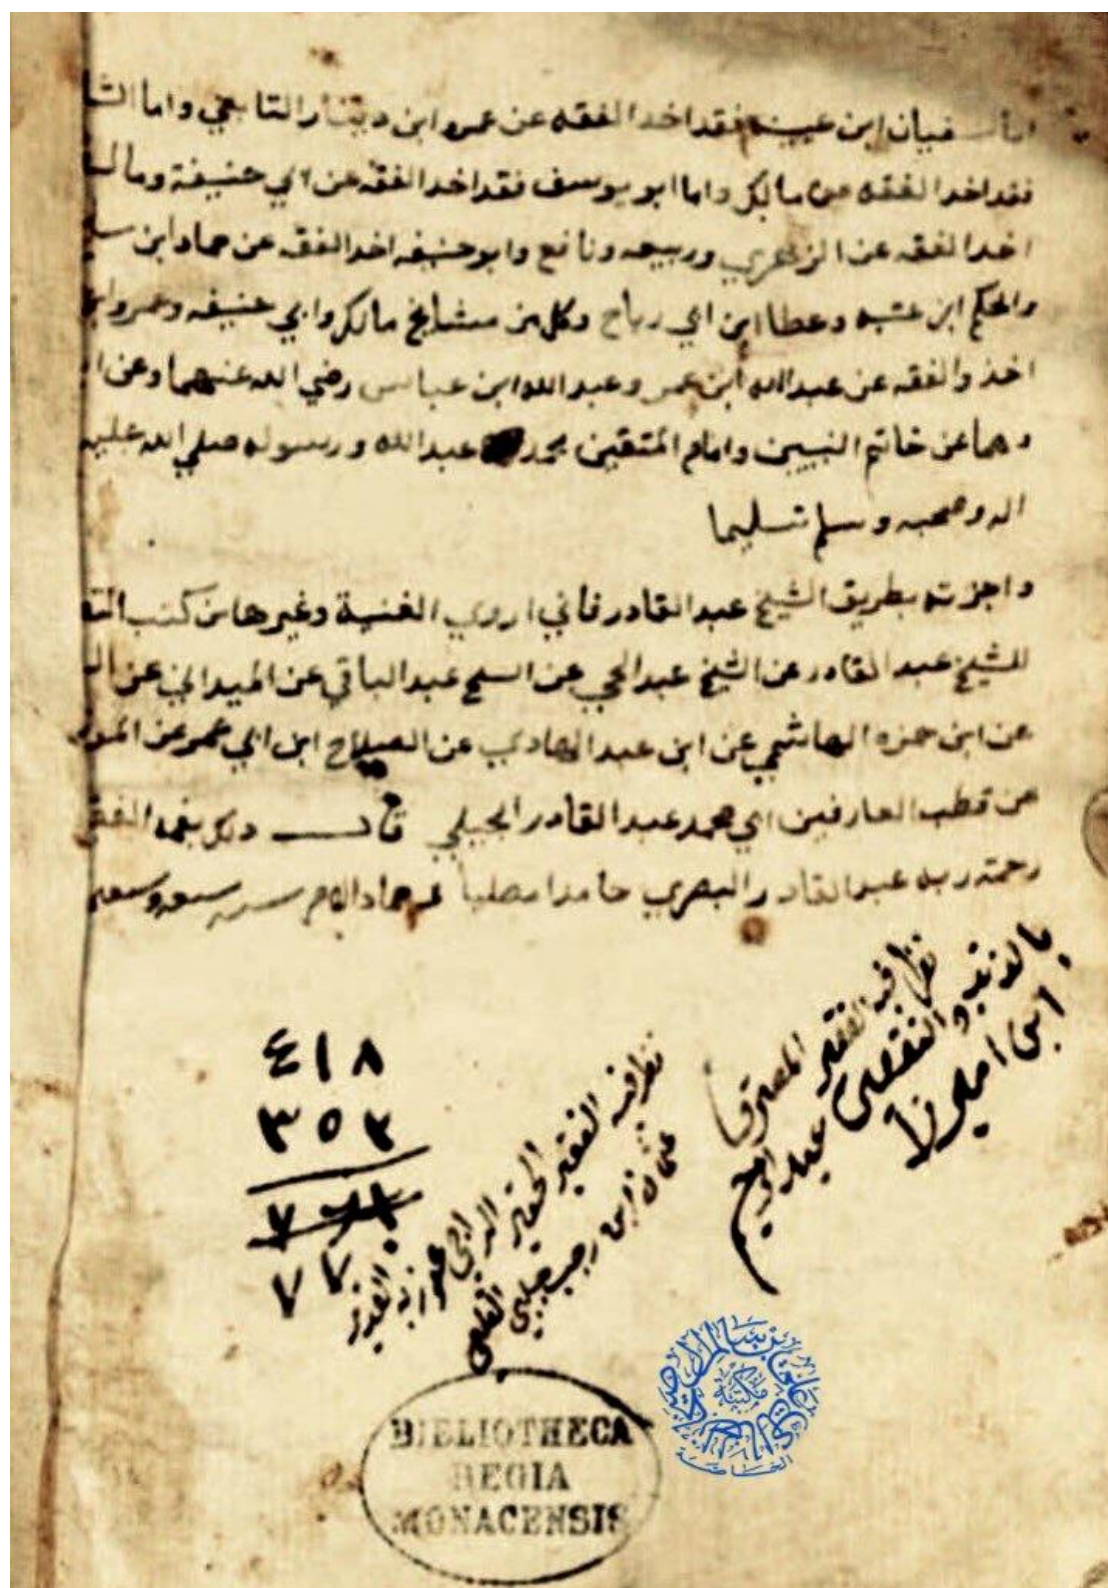 اما سفيان ابن عيينه فقد اخد الفقه عن عمرو ابن دينار التابعي واما الشا
فقد اخد الفقه عن مالك واما ابو يوسف فقد اخد الفقه عن ابي حنيفة ومالك
اخد الفقه عن الزهري وربيعه ونافع وابو حنيفه اخد الفقه عن حماد ابن سل
والحكم ابن عتيبه وعطا ابن ابي رباح وكل من مشايخ مالك وابي حنيفه وعمرو ابن
اخذ والفقه عن عبد الله ابن عمر وعبد الله ابن عباس رضي الله عنهما وعن ا
وهما عن خاتم النبيين وامام المتقين محمد عبد الله ورسوله صلي الله عليه
اله وصحبه وسلم تسليما
واجزته بطريق الشيخ عبد القادر فاني اروي الغنية وغيرها من كتب
للشيخ عبد القادر عن الشيخ عبد الحي عن الشيخ عبد الباقي عن الميداني عن
عن ابن حمزه الهاشمي عن ابن عبد الهادي عن الصلاح ابن ابي عمر عن
عن قطب العارفين ابي محمد عبد القادر الجيلي قال ذلك بفمه
رحمة ربه عبد القادر البصري حامدا مصليا
نظر فيه الفقير المعترف
بالذنب والتقصير عبد الرحيم
ابن اميرزا
نظر فيه الفقير الحقير الراجي عفو ربه القدير
عثمان ابن رجب چلبي
٤١٨
٣٥٢
٧٧٠
BIBLIOTHECA
REGIA
MONACENSIS
مكتبة
الخاصة